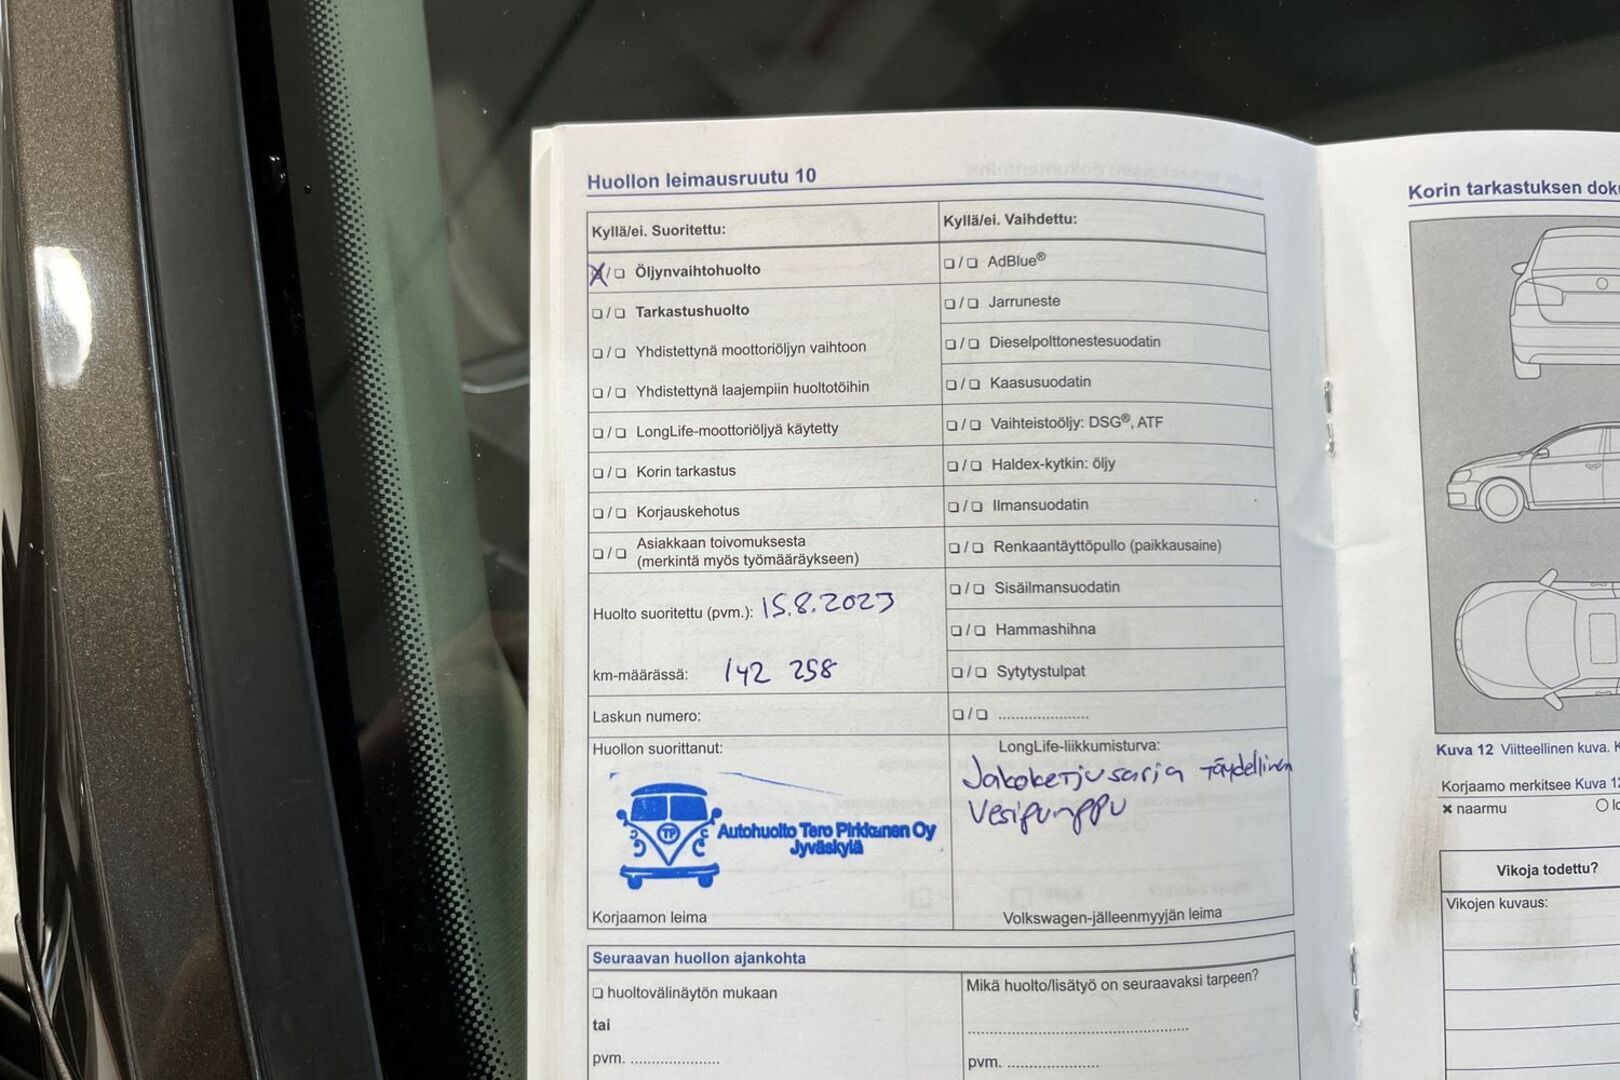 Huollon leimausruutu 10
Kyllä/ei. Suoritettu:
Öljynvaihtohuolto
Tarkastushuolto
Yhdistettynä moottoriöljyn vaihtoon
Yhdistettynä laajempiin huoltotöihin
LongLife-moottoriöljyä käytetty
Korin tarkastus
Korjauskehotus
Asiakkaan toivomuksesta
(merkintä myös työmääräykseen)
Huolto suoritettu (pvm.): 15.8.2023
km-määrässä: 142 258
Laskun numero:
Huollon suorittanut:
TP
Autohuolto Tero Pirkkanen Oy
Jyväskylä
Korjaamon leima
Kyllä/ei. Vaihdettu:
AdBlue®
Jarruneste
Dieselpolttonestesuodatin
Kaasusuodatin
Vaihteistoöljy: DSG®, ATF
Haldex-kytkin: öljy
Ilmansuodatin
Renkaantäyttöpullo (paikkausaine)
Sisäilmansuodatin
Hammashihna
Sytytystulpat
....................
LongLife-liikkumisturva:
Jakoketjusarja täydellinen
Vesipumppu
Volkswagen-jälleenmyyjän leima
Seuraavan huollon ajankohta
huoltovälinäytön mukaan
tai
pvm. ....................
Mikä huolto/lisätyö on seuraavaksi tarpeen?
..................................................
pvm. ....................
Korin tarkastuksen
Kuva 12 Viitteellinen kuva.
Korjaamo merkitsee Kuva
naarmu
Vikoja todettu?
Vikojen kuvaus: